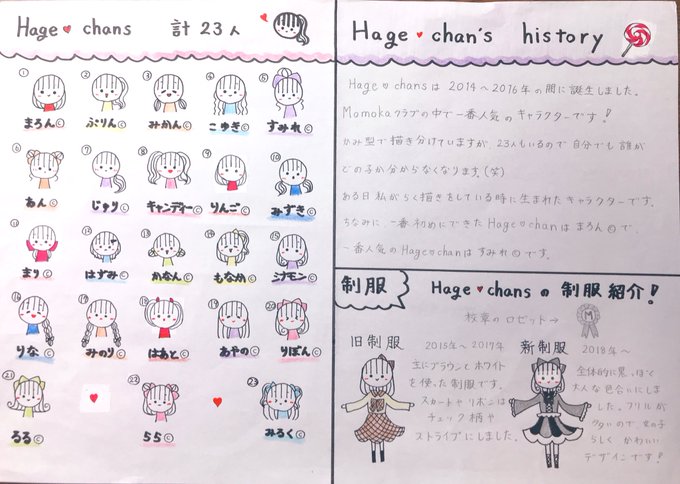 Hage♥chans 計23人
① まろん©
② ぷりん©
③ みかん©
④ こゆき©
⑤ すみれ©
⑥ あん©
⑦ じゅり©
⑧ キャンディー©
⑨ りんご©
⑩ みずき©
⑪ まり©
⑫ はずみ©
⑬ かなん©
⑭ もなか©
⑮ シナモン©
⑯ りな©
⑰ みのり©
⑱ はあと©
⑲ あやの©
⑳ りぼん©
㉑ るる©
㉒ らら©
㉓ みるく©
Hage♥chan's history
Hage♥chansは2014〜2016年の間に誕生しました。
Momokaクラブの中で一番人気のキャラクターです!
かみ型で描き分けていますが、23人もいるので自分でも誰が
どの子か分からなくなります。(笑)
ある日私がらく描きをしている時に生まれたキャラクターです。
ちなみに、一番初めにできたHage♥chanはまろん©で、
一番人気のHage♥chanはすみれ©です。
制服
Hage♥chansの制服紹介!
校章のロゼット→
M
旧制服
2015年〜2017年
主にブラウンとホワイト
を使った制服です。
スカートやリボンは
チェック柄や
ストライプにしました。
新制服
2018年〜
全体的に黒っぽく
大人な色合いにしま
した。フリルが
多いので、女の子
らしく かわいい
デザインです!